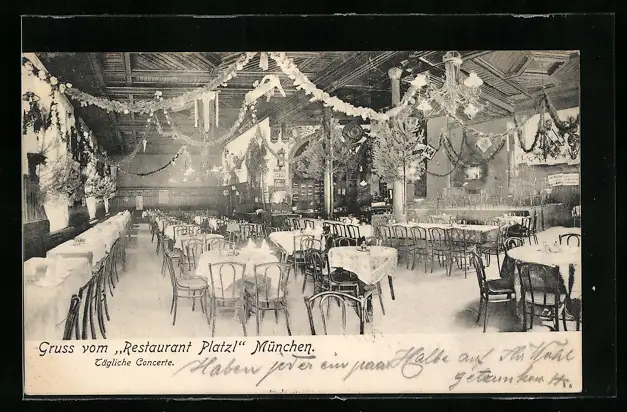 Gruss vom „Restaurant Platzl“ München.
Tägliche Concerte.
Haben jeder ein paar Halbe auf Ihr Wohl
getrunken